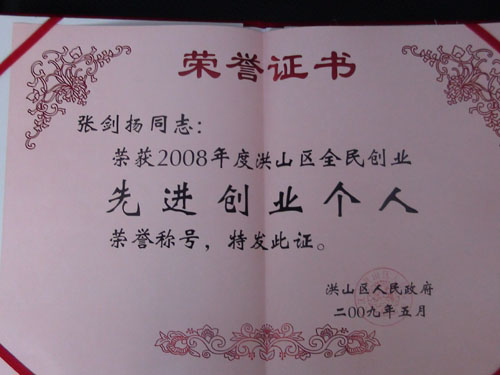 荣誉证书
张剑扬同志：
荣获2008年度洪山区全民创业
先进创业个人
荣誉称号，特发此证。
洪山区人民政府
二00九年五月